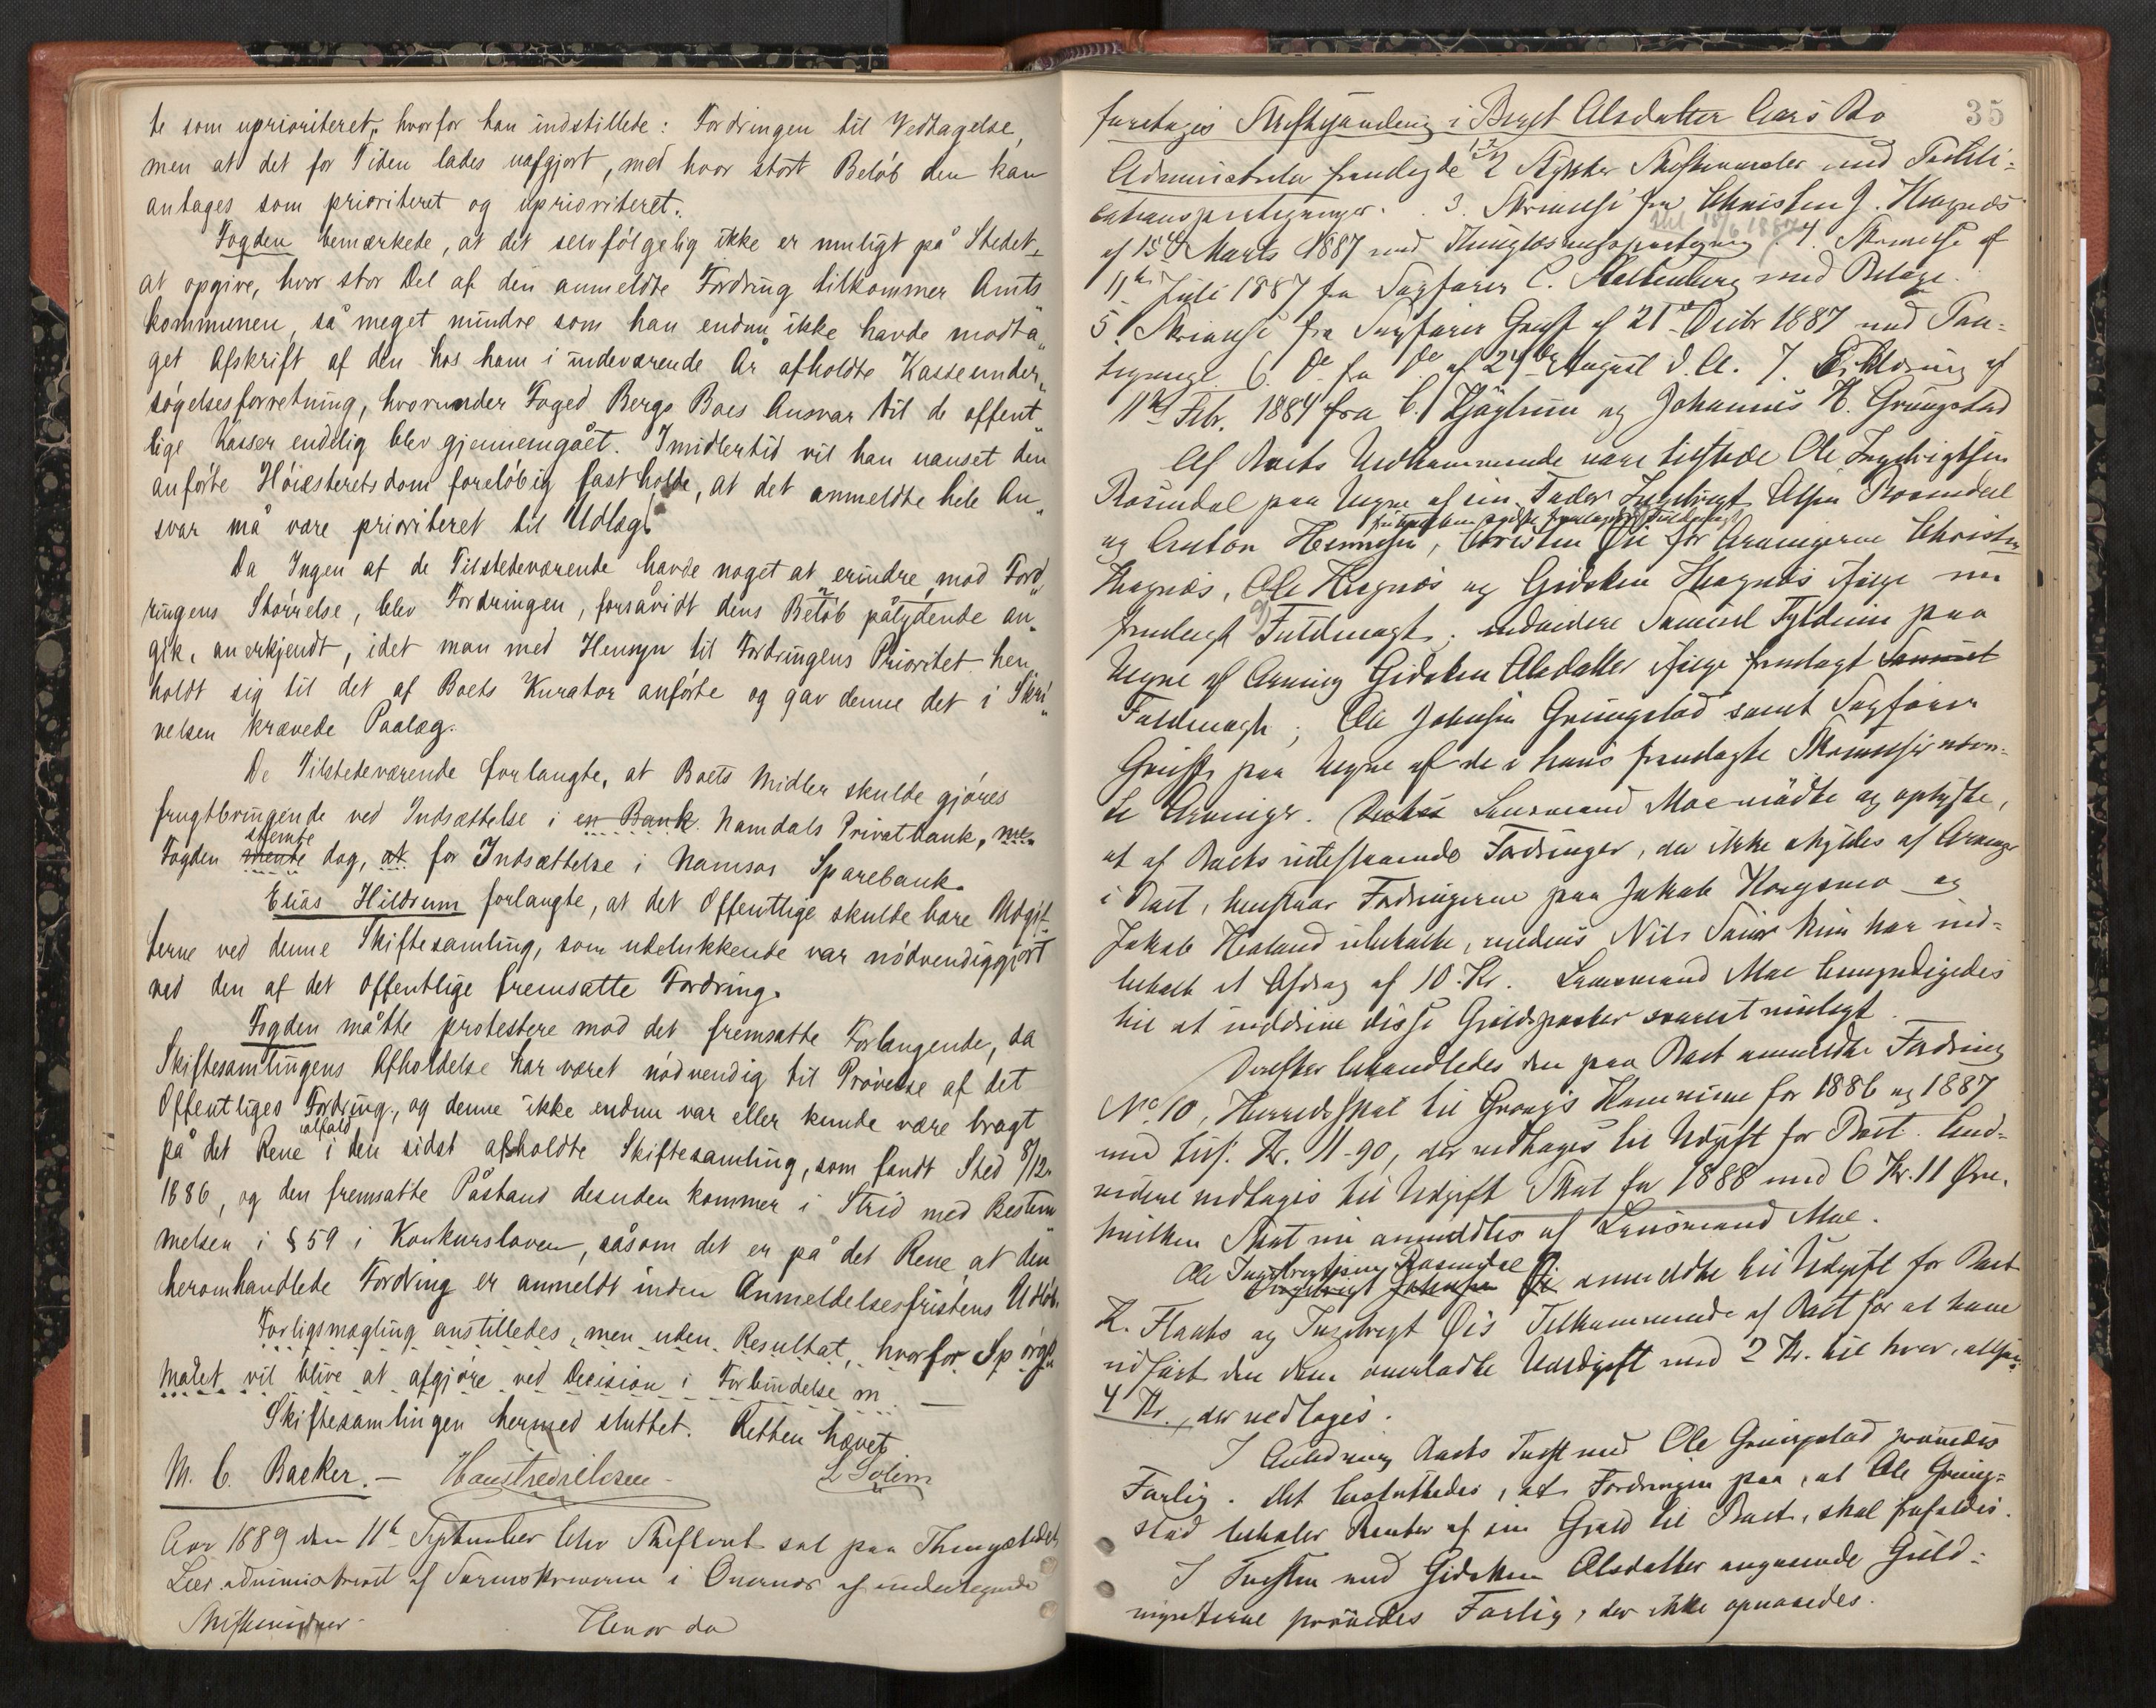 te som uprioriteret, hvorfor han indstillede: Fordringen til Vedtagelse,
men at det for Tiden lades uafgjort, med hvor stort Beløb den kan
antages som prioriteret og uprioriteret.
Fogden bemærkede, at det selvfølgelig ikke er muligt på Stedet
at opgive, hvor stor Del af den anmeldte Fordring tilkommer Amts„
kommunen, så meget mindre som han endnu ikke havde modta„
get Afskrift af den hos ham i indeværende År afholdte Kasseunder„
søgelsesforretning, hvorunder Foged Bergs Boes Ansvar til de offent„
lige Kasser endelig blev gjennemgået. Imidlertid vil han uanset den
anførte Høiesteretsdom foreløbig fastholde, at det anmeldte hele An„
svar må være prioriteret til Udlæg.
Da Ingen af de Tilstedeværende havde noget at erindre mod Ford„
ringens Størrelse, blev Fordringen, forsåvidt dens Beløb pålydende an„
gik, anerkjendt, idet man med Hensyn til Fordringens Prioritet hen„
holdt sig til det af Boets Kurator anførte og gav denne det i Skri„
velsen krævede Paalæg.
De Tilstedeværende forlangte, at Boets Midler skulde gjøres
frugtbringende ved Indsættelse i en Bank Namdals Privatbank, men
stemte
Fogden mente dog, at for Indsættelse i Namsos Sparebank.
Elias Hildrum forlangte, at det Offentlige skulde bære Udgif„
terne ved denne Skiftesamling, som udelukkende var nødvendiggjort
ved den af det offentlige fremsatte Fordring.
Fogden måtte protestere mod det fremsatte Forlangende, da
Skiftesamlingens Afholdelse har været nødvendig til Prøvelse af det
Offentliges Fordring, og denne ikke endnu var eller kunde være bragt
ialfald
på det Rene i den sidst afholdte Skiftesamling, som fandt Sted 8/12.
1886, og den fremsatte Påstand desuden kommer i Strid med Bestem„
melsen i § 59 i Konkursloven, såsom det er på det Rene, at den
heromhandlede Fordring er anmeldt inden Anmeldelsesfristens Udløb.
Forligsmægling anstilledes, men uden Resultat, hvorfor Spørgs„
målet vil blive at afgjøre ved Decision i Forbindelse m
Skiftesamlingen hermed sluttet. Retten hævet
M. C. Backer. – L Solem
Aar 1889 den 11te September blev Skifteret sat paa Thingstedet
Lier administreret af Sorenskriveren i Overnes af undertegnede
35
foretages Skiftehandling i Beret Olsdatter Liers Bo
1-2
Administrator fremlagde 2 Stykker med
3. Skrivelse fra Christen J. Haagnæs
af 15de Marts 1887 med 4. Skrivelse af
11te Juli 1887 fra Sagfører C. med Bilage.
5. Skrivelse fra Sagfører af 21de Decbr 1887 med Paa-
tegninger 6. Do fra Do af 24de August d. A. 7. af
11te Febr. 1884 fra C. og Johannes H. Grungstad
Af Boets Vedkommende vare tilstede Ole Ingebrigtsen
Rosendal paa Vegne af sin Fader Ingebrigt Olsen Rosendal
og Anton for Arvingerne Christen
Haagnæs, Ole Haagnæs og Gidsken Haagnæs ifølge nu
fremlagt Fuldmagt; endvidere paa
Vegne af Arving Gidsken Olsdatter ifølge fremlagt
Fuldmagt; Ole Johnsen Grungstad samt Sagfører
paa Vegne af de i hans fremlagte Skrivelser nævn-
te Arvinger. Lensmand Moe mødte og oplyste,
at af Boets udestaaende Fordringer, der ikke skyldes af Arvinger
i Boet, henstaar Fordringerne paa Jakob og
Jakob ubetalte, medens Nils har ind-
betalt et Afdrag af 10 Kr. Lensmand Moe bemyndigedes
til at inddrive disse Gjældsposter snarest muligt.
Derefter behandledes den paa Boet anmeldte Fordring
No. 10, Herredsskat til Grongs Kommune for 1886 og 1887
med tils. Kr. 11-90, der vedtages til Udgift for Boet. End-
videre vedtages til Udgift Skat for 1888 med 6 Kr. 11 Øre,
hvilken Skat nu anmeldtes af Lensmand Moe.
Ole Ingebrigtsen Rosendal
anmeldte til Udgift for Boet
og Ingebrigt Øis Tilkommende af Boet for at have
udført den dem overladte med 2 Kr. til hver, altsaa
4 Kr., der vedtages.
I Anledning Boets Tvist med Ole Grungstad prøvedes
Forlig. Det besluttedes, at Fordringen paa, at Ole Grung-
stad betaler Renter af sin Gjæld til Boet, skal frafaldes.
I Tvisten med Gidsken Olsdatter angaaende
prøvedes Forlig, der ikke opnaaedes.